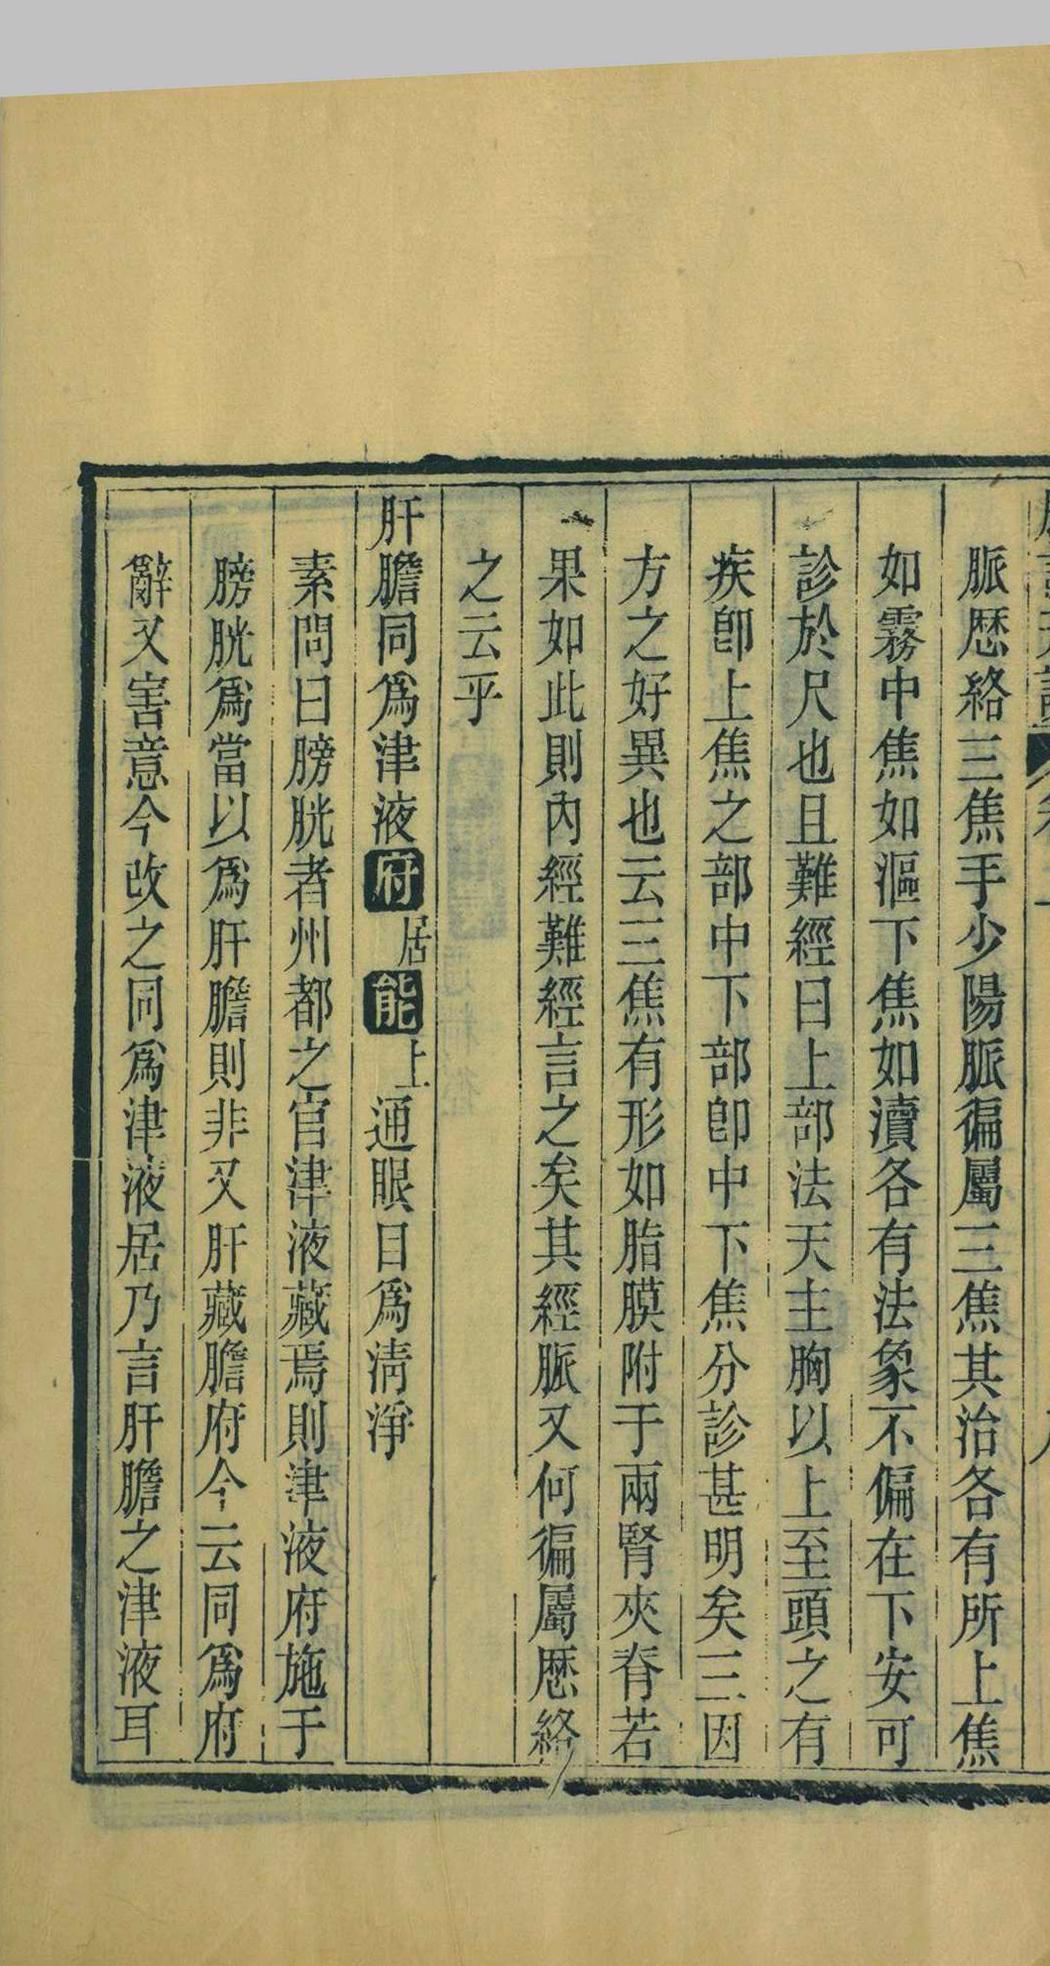 脈歷絡三焦手少陽脈徧屬三焦其治各有所上焦
如霧中焦如漚下焦如瀆各有法象不偏在下安可
診於尺也且難經曰上部法天主胸以上至頭之有
疾卽上焦之部中下部卽中下焦分診甚明矣三因
方之好異也云三焦有形如脂膜附于兩腎夾脊若
果如此則內經難經言之矣其經脈又何徧屬歷絡
之云乎
肝膽同爲津液府居能上通眼目爲清淨
素問曰膀胱者州都之官津液藏焉則津液府施于
膀胱爲當以爲肝膽則非又肝藏膽府今云同爲府
辭又害意今改之同爲津液居乃言肝膽之津液耳